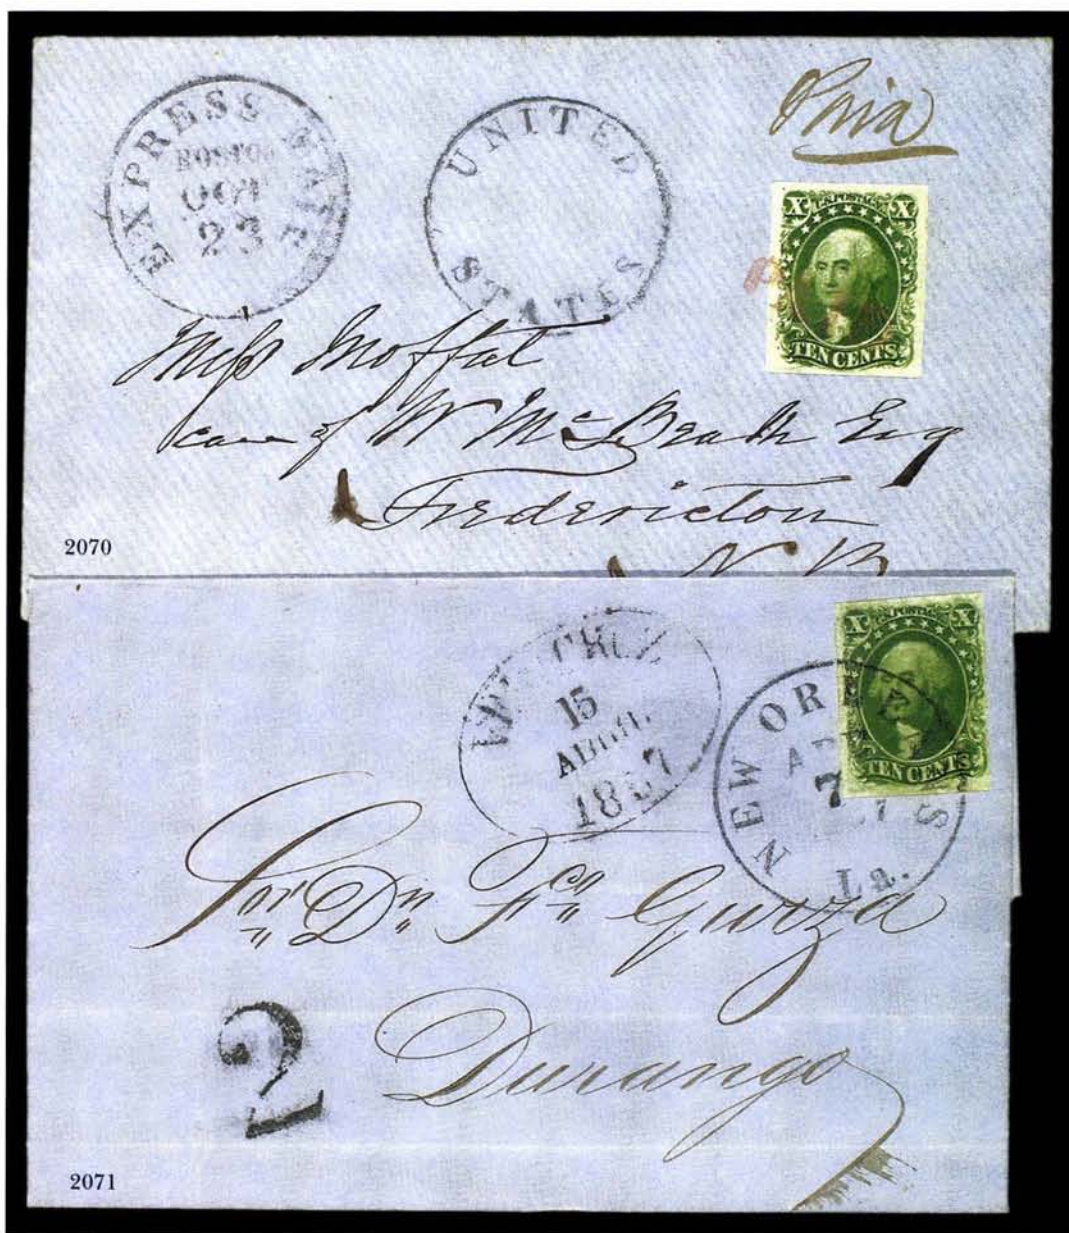 EXPRESS MAIL
BOSTON
OCT
23
UNITED
STATES
Paid
X U.S. POSTAGE X
TEN CENTS
Miss Moffat
care of W Mc Beath Esq
Fredericton
N. B.
2070
VERACRUZ
15
ABRIL
1857
NEW ORLEANS
7
La.
X U.S. POSTAGE X
TEN CENTS
Sor Dn Fco Gurza
Durango
2
2071